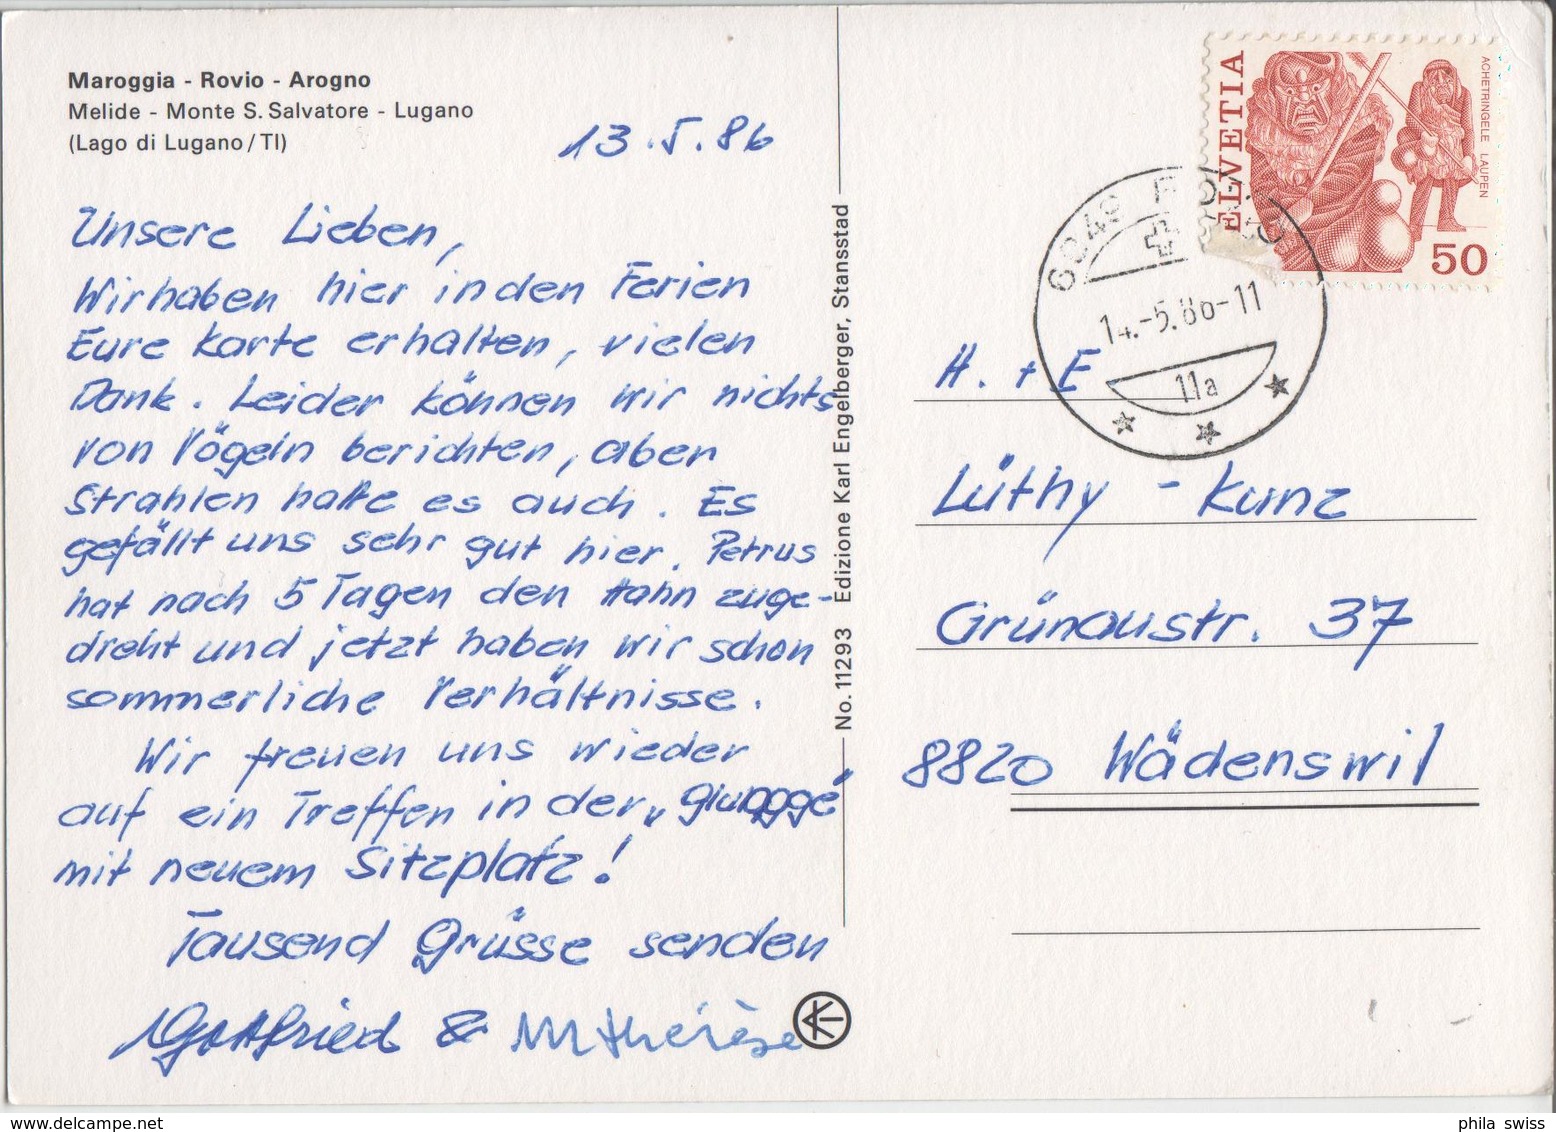 Maroggia - Rovio - Arogno
Melide - Monte S. Salvatore - Lugano
(Lago di Lugano / TI)
13.5.86
Unsere Lieben,
Wir haben hier in den Ferien
Eure Karte erhalten, vielen
Dank. Leider können wir nichts
von Vögeln berichten, aber
Strahlen hatte es auch. Es
gefällt uns sehr gut hier. Petrus
hat nach 5 Tagen den Hahn zuge-
dreht und jetzt haben wir schon
sommerliche Verhältnisse.
Wir freuen uns wieder
auf ein Treffen in der
mit neuem Sitzplatz!
Tausend Grüsse senden
Gottfried & M. Thérèse
No. 11293 Edizione Karl Engelberger, Stansstad
HELVETIA
ACHETRINGELE LAUPEN
50
14.-5.86-11
11a
H. + E
Lüthy - Kunz
Grünaustr. 37
8820 Wädenswil
phila swiss